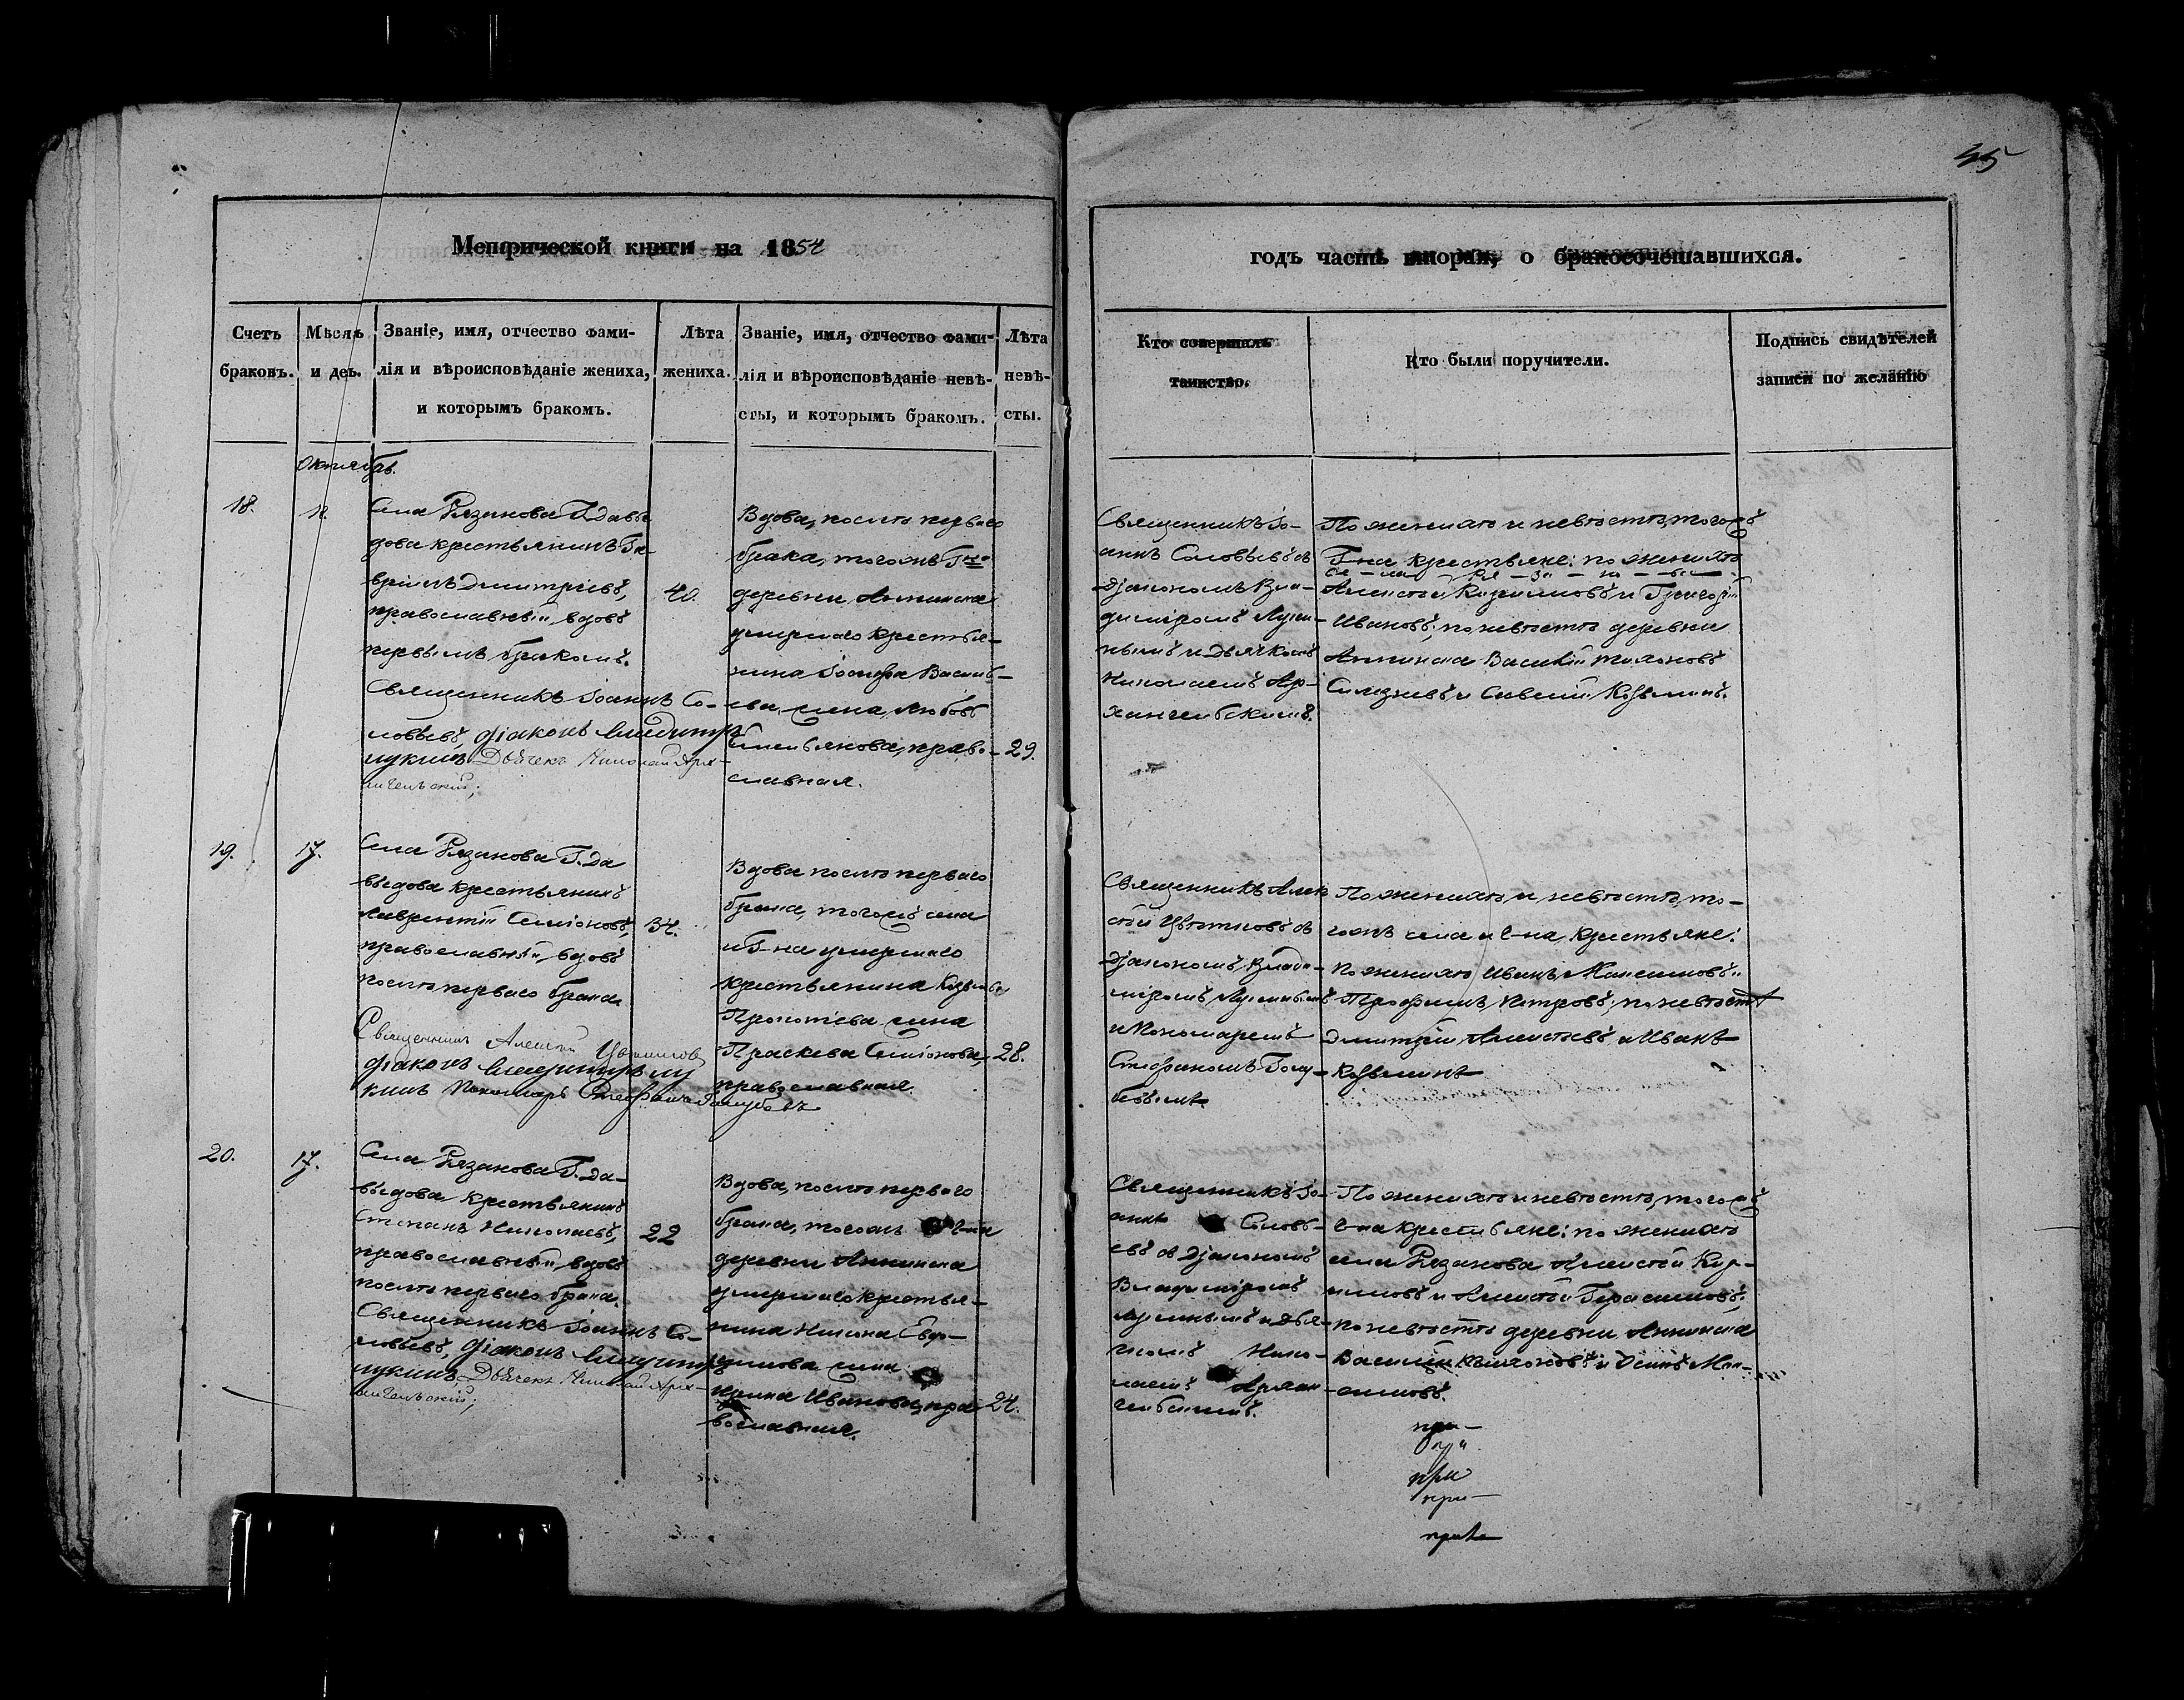 45
Метрической книги на 1854
годъ часть вторая, о бракосочетавшихся.
Счетъ
браковъ.
Мѣсяъ
и деь.
Званіе, имя, отчество фами-
лія и вѣроисповѣданіе жениха,
и которымъ бракомъ.
Лѣта
жениха.
Званіе, имя, отчество фами-
лія и вѣроисповѣданіе невѣ-
сты, и которымъ бракомъ.
Лѣта
невѣ-
сты.
Кто совершалъ
таинство.
Кто были поручители.
Подпись свидѣтелей
записи по желанію
Октябрь.
18.
Села Рязанова Г. Давы
дова крестьянинъ Га-
вріилъ Дмитріевъ,
православный, вдовъ
первымъ бракомъ.
Священникъ Іоаннъ Со-
ловьевъ, діаконъ Владимиръ
Лукинъ Дьячекъ Николай Арха-
нгельскій;
40.
Вдова, послѣ перваго
брака, тогожъ Г-на
деревни Аннинска
умершаго крестья-
нина Іосифа Василь-
ева жена Любовь
Емельянова, право-
славная.
29.
Священникъ Іо-
аннъ Соловьевъ съ
Діакономъ Вла-
диміромъ Луки-
нымъ и Дьячкомъ
Николаемъ Ар-
хангельскимъ.
По женихѣ и невѣстѣ, тогожъ
Г-на крестьяне: по женихѣ
се - ла Ря - за - но - ва
Алексѣй и Григорій
Ивановъ; по невѣстѣ деревни
Аннинска Василій Тихоновъ
и Савелій Козьминъ.
19.
17.
Села Рязанова Г. Да
выдова крестьянинъ
Лаврентій Семіоновъ,
православный, вдовъ
послѣ перваго брака
Священникъ Алексѣй Цвѣтковъ
діаконъ Владимиръ Лу
кинъ Пономарь Стефанъ Голубевъ
34.
Вдова послѣ перваго
брака, тогожъ села
и Г-на умершаго
крестьянина Козьмы
Прокопіева жена
Праскева Семіонова,
православная
28.
Священникъ Алек
сѣй Цвѣтковъ съ
Діакономъ Влади-
міромъ Лукинымъ
и Пономаремъ
Стефаномъ Голу-
бевымъ
По женихѣ и невѣстѣ, то-
гожъ села и Г-на, крестьяне:
По женихѣ Иванъ Максимовъ и
Трофимъ Петровъ; по невѣстѣ
Димитрій Алексѣевъ и Иванъ
Козьминъ
20.
17.
Села Рязанова Г. Да-
выдова крестьянинъ
Степанъ Николаевъ,
православный, вдовъ
послѣ перваго брака.
Священникъ Іоаннъ Со-
ловьевъ, діаконъ Владимиръ
Лукинъ, Дьячекъ Николай Арха-
нгельскій;
22
Вдова, послѣ перваго
брака, тогожъ Г-на
деревни Аннинска
умершаго крестья-
нина Никона Евдо-
кимова жена
Ирина Иванова, пра-
вославная.
24.
Священникъ Іо-
аннъ Соловь-
евъ съ Діакономъ
Владиміромъ
Лукинымъ и Дья-
чкомъ Нико-
лаемъ Архан-
гельскимъ.
По женихѣ и невѣстѣ, тогожъ
Г-на крестьяне: по женихѣ
села Рязанова Алексѣй
и Алексѣй Герасимовъ;
по невѣстѣ деревни Аннинска
Василій Тихоновъ и Осипъ Мак-
симовъ.
при-
при
при
при-